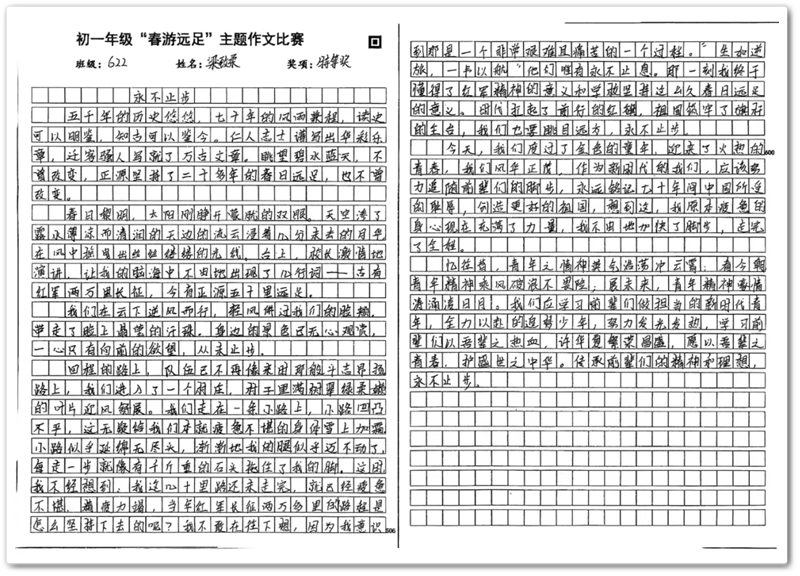 初一年级“春游远足”主题作文比赛
班级：622 姓名：梁 奖项：特等奖
永不止步
五千年的历史悠悠，七十年的风雨兼程，读史
可以明鉴，知古可以鉴今。仁人志士谱写出华彩乐
章，迁客骚人写就了万古文章。眺望碧水蓝天，不
曾改变，正源坚持了二十多年的春日远足，也不曾
改变。
春日黎明，太阳刚睁开朦胧的双眼。天空凑了
露水薄凉而清润的天边的流云浸着几分未去的月华
在风中抽里出丝丝络络的光线。台上，校长激情地
演讲，让我的脑海中不由地出现了几行词——古有
红军两万里长征，今有正源五十里远足。
我们在云下逆风而行，轻风拂过我们的脸颊，
带走了脸上晶莹的汗珠，身边的景色已无心观赏，
一心只有向前的欲望，从未止步。
回程的路上，队伍已不再像来田那般斗志昂扬
路上，我们进入了一个村庄，村子里满树翠绿柔嫩
的叶片迎风舒展。我们走在一条小路上，小路凹凸
不平，这无疑给我们本就疲惫不堪的身体雪上加霜
小路似乎延绵无尽头，渐渐地我的腿似乎迈不动了，
每走一步就像有千斤重的石头拖住了我的脚。这因
我不经想到：我这几十里路还未走完，就已经疲惫
不堪，精疲力竭，当年红军长征两万多里的路程是
怎么坚持下去的呢？我不敢在往下想，因为我意识
506
到那是一个非常艰难且痛苦的一个过程。“生如逆
旅，一苇以航”他们唯有永不止息。那一刻我终于
懂得了红军精神的意义和学校坚持这么久春日远足
的意义。因代扛起了前行的红旗，祖国筑牢了
的生台，我们也要眺目远方，永不止步。
今天，我们度过了金色的童年，迎来了火热的
600
青春，我们风华正茂，作为新时代的我们，应该努
力追随前辈们的脚步，永远铭记七十年间中国所受
的耻辱，创造更好的祖国，想到这，我原本疲惫的
身心现在充满了力量，我不由地加快了脚步，走完
了全程。
忆往昔，青年之精神英气浩荡冲云霄；看今朝
青年精神乘风破浪不畏险，展未来，青年精神豪情
满涌流日月。我们应学习前辈们做担当的新时代青
年，全力以赴的追梦少年，努力发光发热，学习前
辈们以吾辈之热血，许华夏繁荣昌盛，愿以吾辈之
青春，护盛世之中华。传承前辈们的精神和理想，
永不止步。